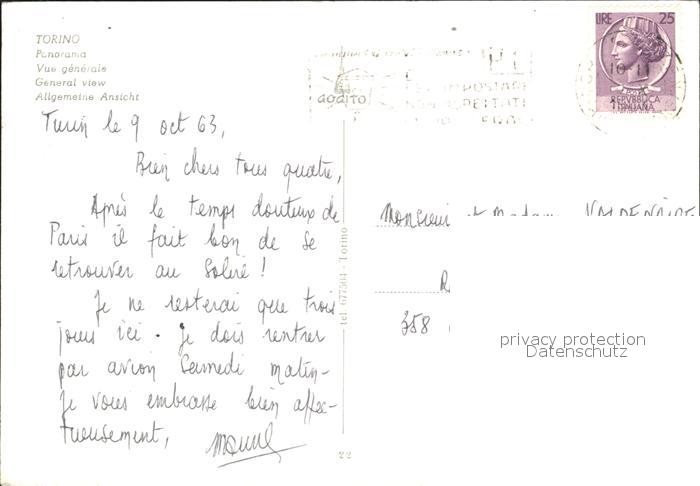 TORINO
Panorama
Vue générale
General view
Allgemeine Ansicht
LIRE 25
POSTE
REPVBBLICA
ITALIANA
IMPOSTARE
Turin le 9 oct 63,
Bien chers tous quatre,
Après le temps douteux de
Paris il fait bon de se
retrouver au soleil !
Je ne resterai que trois
jours ici. Je dois rentrer
par avion Samedi matin -
Je vous embrasse bien affec-
tueusement,
tel. 677504 - Torino
22
Monsieur et Madame
R
358
privacy protection
Datenschutz